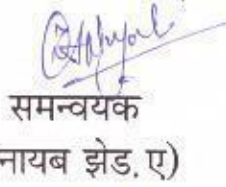 समन्वयक
नायब झेड. ए)